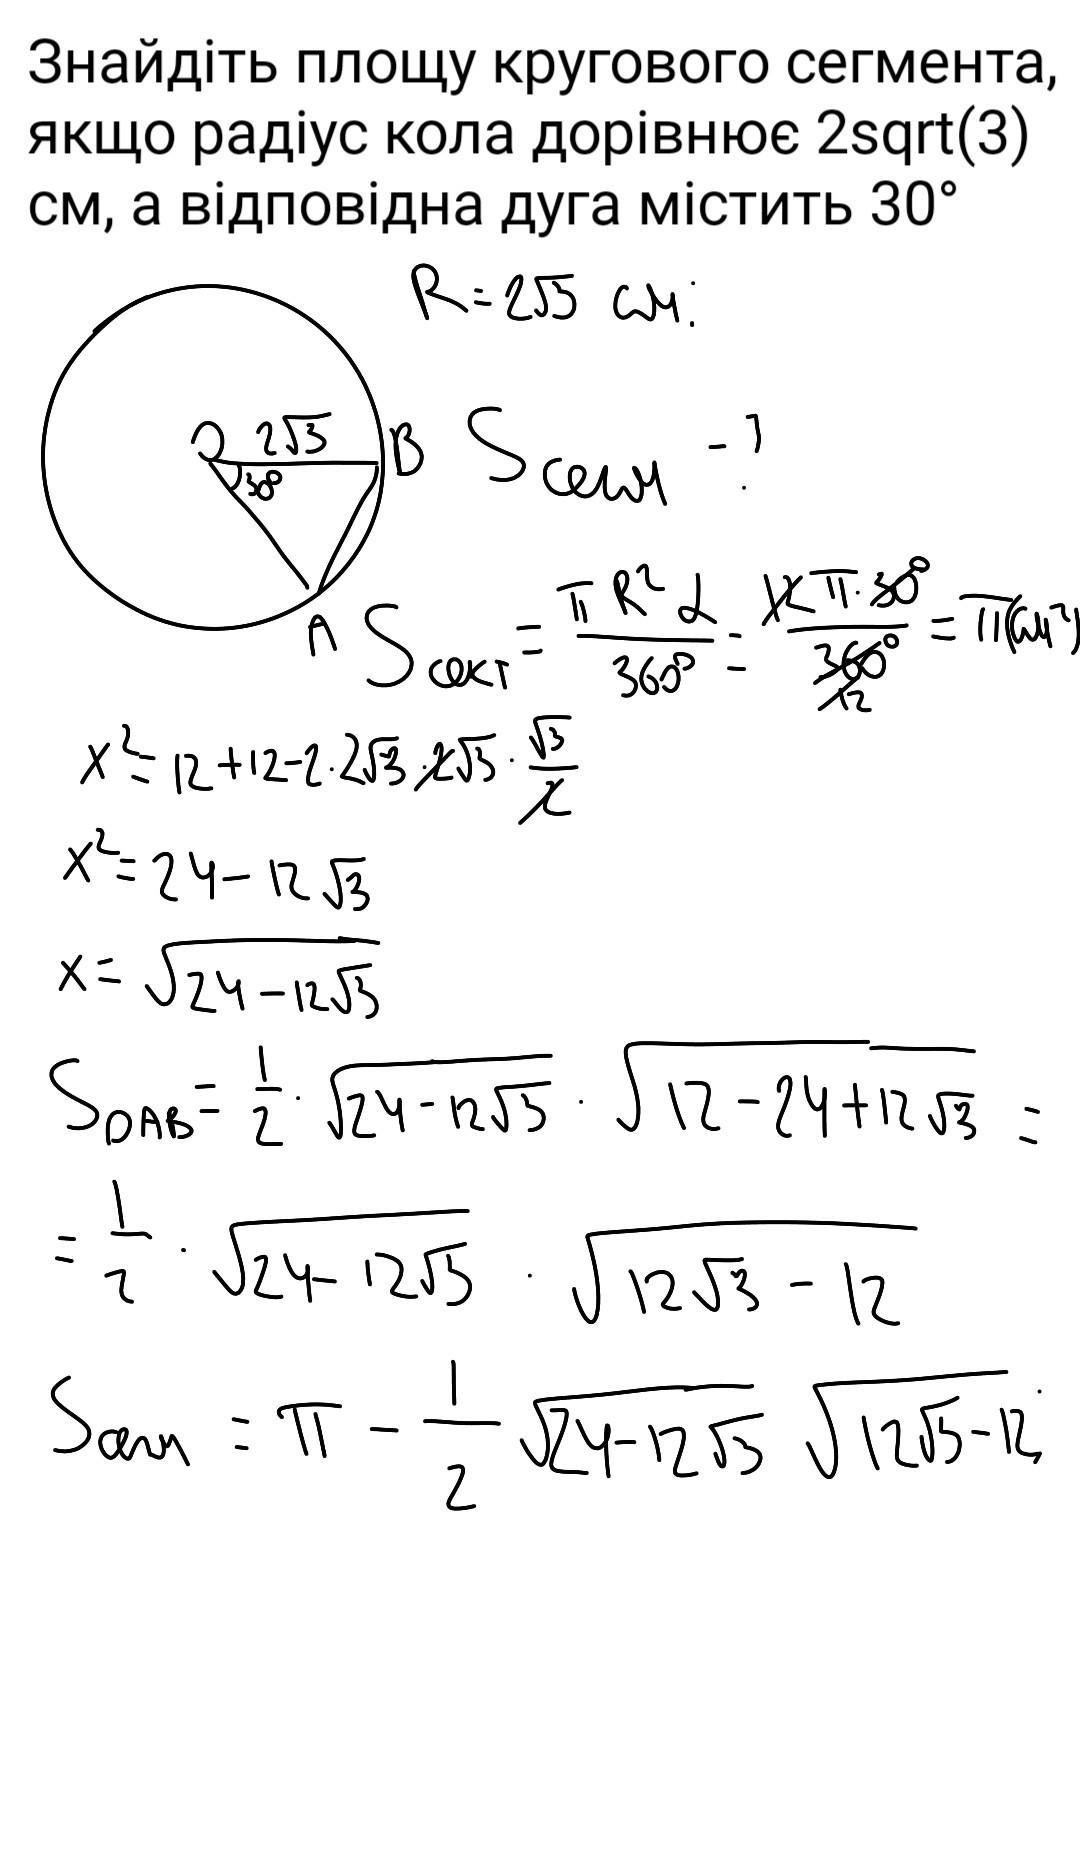 Знайдіть площу кругового сегмента,
якщо радіус кола дорівнює 2sqrt(3)
см, а відповідна дуга містить 30°
R = 2√3 см.
O 2√3 B
30°
A
Sсегм - ?
Sсект = πR²α/360° = 12π·30°/360° = π(см²)
12
x² = 12 + 12 - 2·2√3·2√3·√3/2
x² = 24 - 12√3
x = √(24 - 12√3)
SOAB = 1/2 · √(24 - 12√3) · √(12 - 24 + 12√3) =
= 1/2 · √(24 - 12√3) · √(12√3 - 12)
Sсегм = π - 1/2 √(24 - 12√3) √(12√3 - 12)